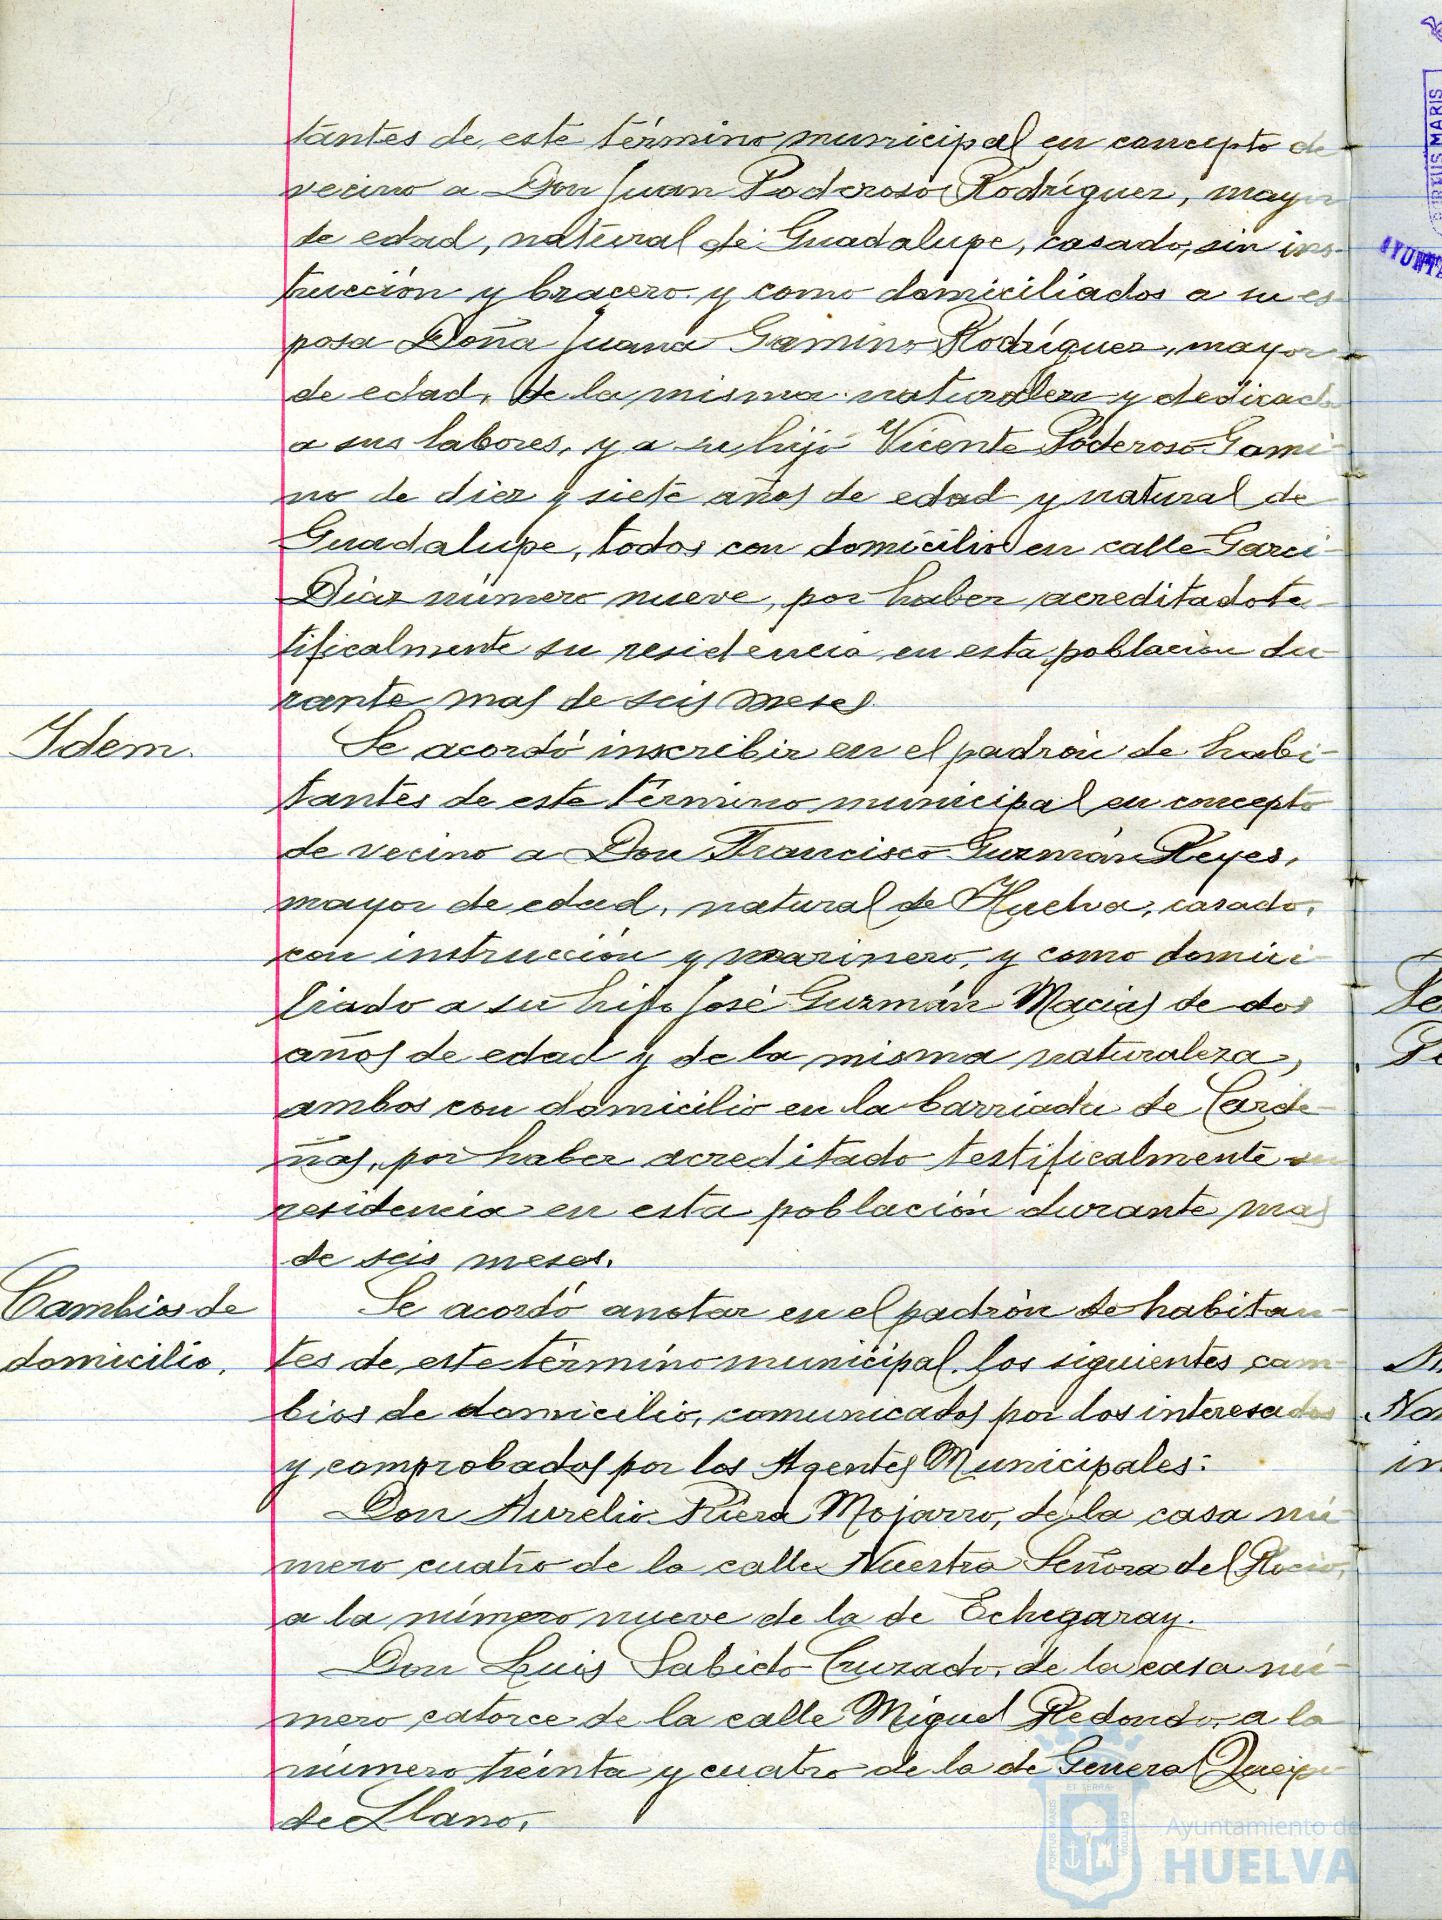 tantes de este término municipal en concepto de
vecino a Don Juan Poderoso Rodríguez, mayor
de edad, natural de Guadalupe, casado, sin ins-
trucción y bracero y como domiciliados a su es-
posa Doña Juana Gamino Rodríguez, mayor
de edad, de la misma naturaleza y dedicada
a sus labores, y a su hijo Vicente Poderoso Gami-
no de diez y siete años de edad y natural de
Guadalupe, todos con domicilio en calle Garci-
Díaz número nueve, por haber acreditado te-
tificalmente su residencia en esta población du-
rante mas de seis meses.
Idem.
Se acordó inscribir en el padrón de habi-
tantes de este término municipal en concepto
de vecino a Don Francisco Guzmán Reyes,
mayor de edad, natural de Huelva, casado,
con instrucción y marinero, y como domici-
liado a su hijo José Guzmán Macias de dos
años de edad y de la misma naturaleza,
ambos con domicilio en la barriada de Carde-
ñas, por haber acreditado testificalmente su
residencia en esta población durante mas
de seis meses.
Cambios de
domicilio.
Se acordó anotar en el padrón de habitan-
tes de este término municipal los siguientes cam-
bios de domicilio, comunicados por los interesados
y comprobados por los Agentes Municipales:
Don Aurelio Riera Mojarro, de la casa nú-
mero cuatro de la calle Nuestra Señora del Rocio,
a la número nueve de la de Echegaray.
Don Luis Sabido Cruzado, de la casa nú-
mero catorce de la calle Miguel Redondo, a la
número treinta y cuatro de la de General Queipo
de Llano.
PORTUS MARIS
AYUNTA
Ayuntamiento de
HUELVA